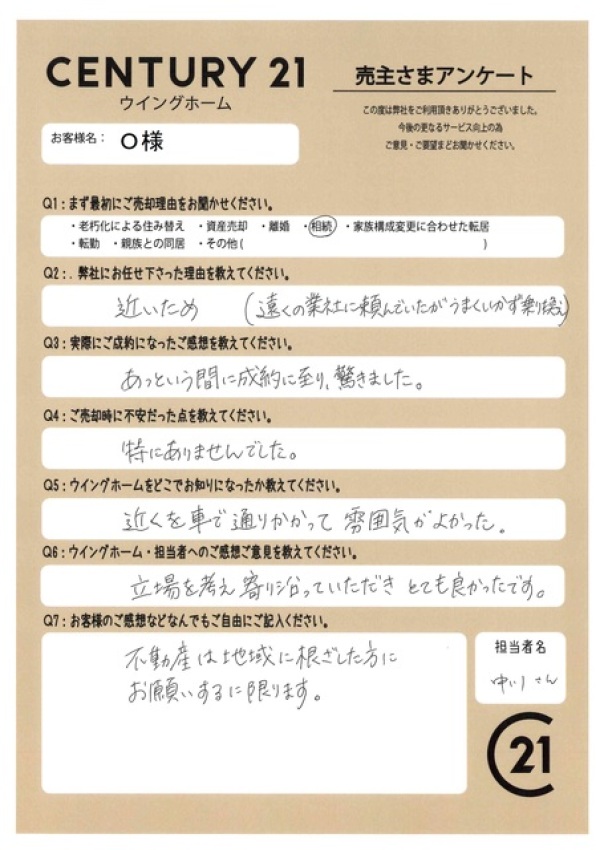 CENTURY 21
ウイングホーム
売主さまアンケート
この度は弊社をご利用頂きありがとうございました。
今後の更なるサービス向上の為
ご意見・ご要望まどお聞かせください。
お客様名： O様
Q1：まず最初にご売却理由をお聞かせください。
・老朽化による住み替え ・資産売却 ・離婚 ・相続 ・家族構成変更に合わせた転居
・転勤 ・親族との同居 ・その他( )
Q2：．弊社にお任せ下さった理由を教えてください。
近いため (遠くの業社に頼んでいたがうまくいかず乗り換え)
Q3：実際にご成約になったご感想を教えてください。
あっという間に成約に至り、驚きました。
Q4：ご売却時に不安だった点を教えてください。
特にありませんでした。
Q5：ウイングホームをどこでお知りになったか教えてください。
近くを車で通りかかって 雰囲気がよかった。
Q6：ウイングホーム・担当者へのご感想ご意見を教えてください。
立場を考え寄り沿っていただき とても良かったです。
Q7：お客様のご感想などなんでもご自由にご記入ください。
不動産は地域に根ざした方に
お願いするに限ります。
担当者名
中川さん
C21